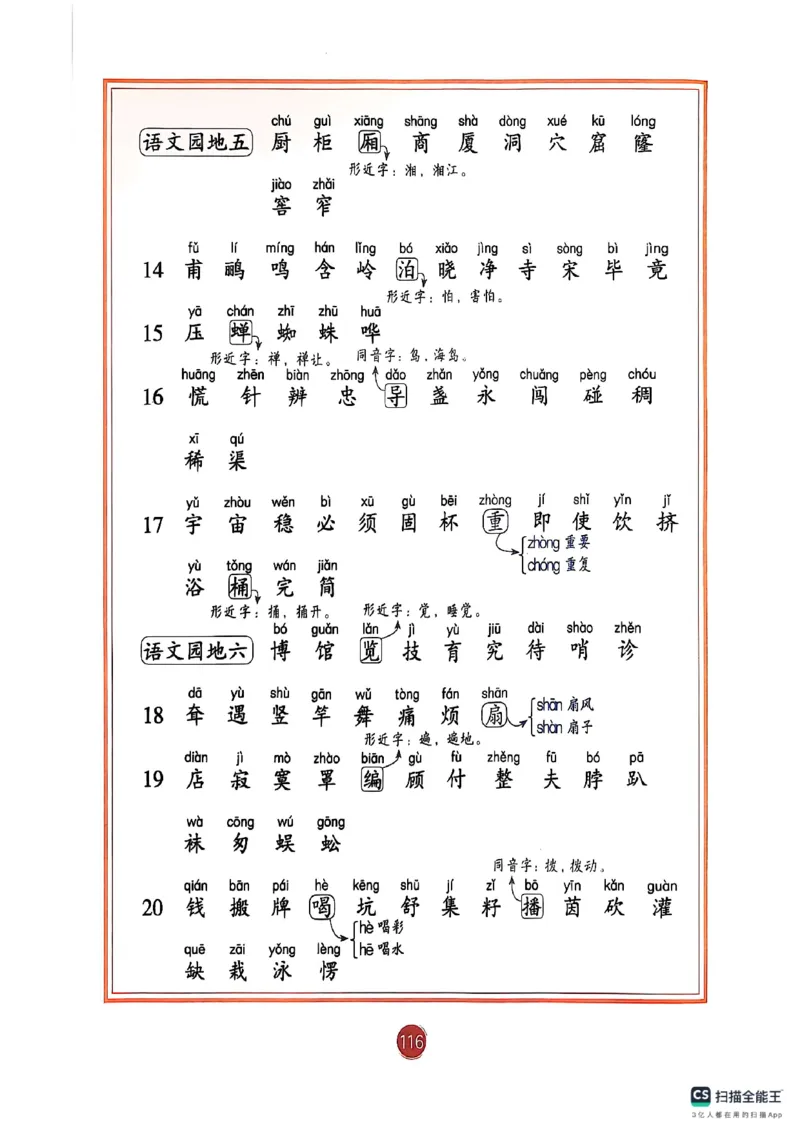 chú guì xiāng shāng shà dòng xué kū lóng
语文园地五 厨 柜 厢 商 厦 洞 穴 窟 窿
形近字：湘，湘江。
jiào zhǎi
窖 窄
fǔ lí míng hán lǐng bó xiǎo jìng sì sòng bì jìng
14 甫 鹂 鸣 含 岭 泊 晓 净 寺 宋 毕 竟
形近字：怕，害怕。
yā chán zhī zhū huā
15 压 蝉 蜘 蛛 哗
形近字：禅，禅让。 同音字：岛，海岛。
huāng zhēn biàn zhōng dǎo zhǎn yǒng chuǎng pèng chóu
16 慌 针 辨 忠 导 盏 永 闯 碰 稠
xī qú
稀 渠
yǔ zhòu wěn bì xū gù bēi zhòng jí shǐ yǐn jǐ
17 宇 宙 稳 必 须 固 杯 重 即 使 饮 挤
zhòng 重要
chóng 重复
yù tǒng wán jiǎn
浴 桶 完 简
形近字：捅，捅开。 形近字：觉，睡觉。
bó guǎn lǎn jì yù jiū dài shào zhěn
语文园地六 博 馆 览 技 育 究 待 哨 诊
dā yù shù gān wǔ tòng fán shān
18 耷 遇 竖 竿 舞 痛 烦 扇
shān 扇风
shàn 扇子
形近字：遍，遍地。
diàn jì mò zhào biān gù fù zhěng fū bó pā
19 店 寂 寞 罩 编 顾 付 整 夫 脖 趴
wà cōng wú gōng
袜 匆 蜈 蚣
同音字：拨，拨动。
qián bān pái hè kēng shū jí zǐ bō yīn kǎn guàn
20 钱 搬 牌 喝 坑 舒 集 籽 播 茵 砍 灌
hè 喝彩
hē 喝水
quē zāi yǒng lèng
缺 栽 泳 愣
116
CS 扫描全能王
3亿人都在用的扫描App